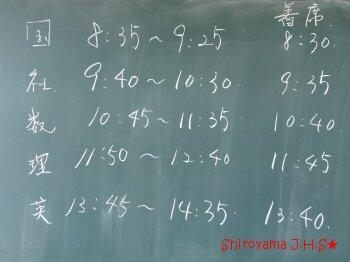 着席
国 8:35～9:25 8:30
社 9:40～10:30 9:35
数 10:45～11:35 10:40
理 11:50～12:40 11:45
英 13:45～14:35 13:40
Shiroyama J.H.S★